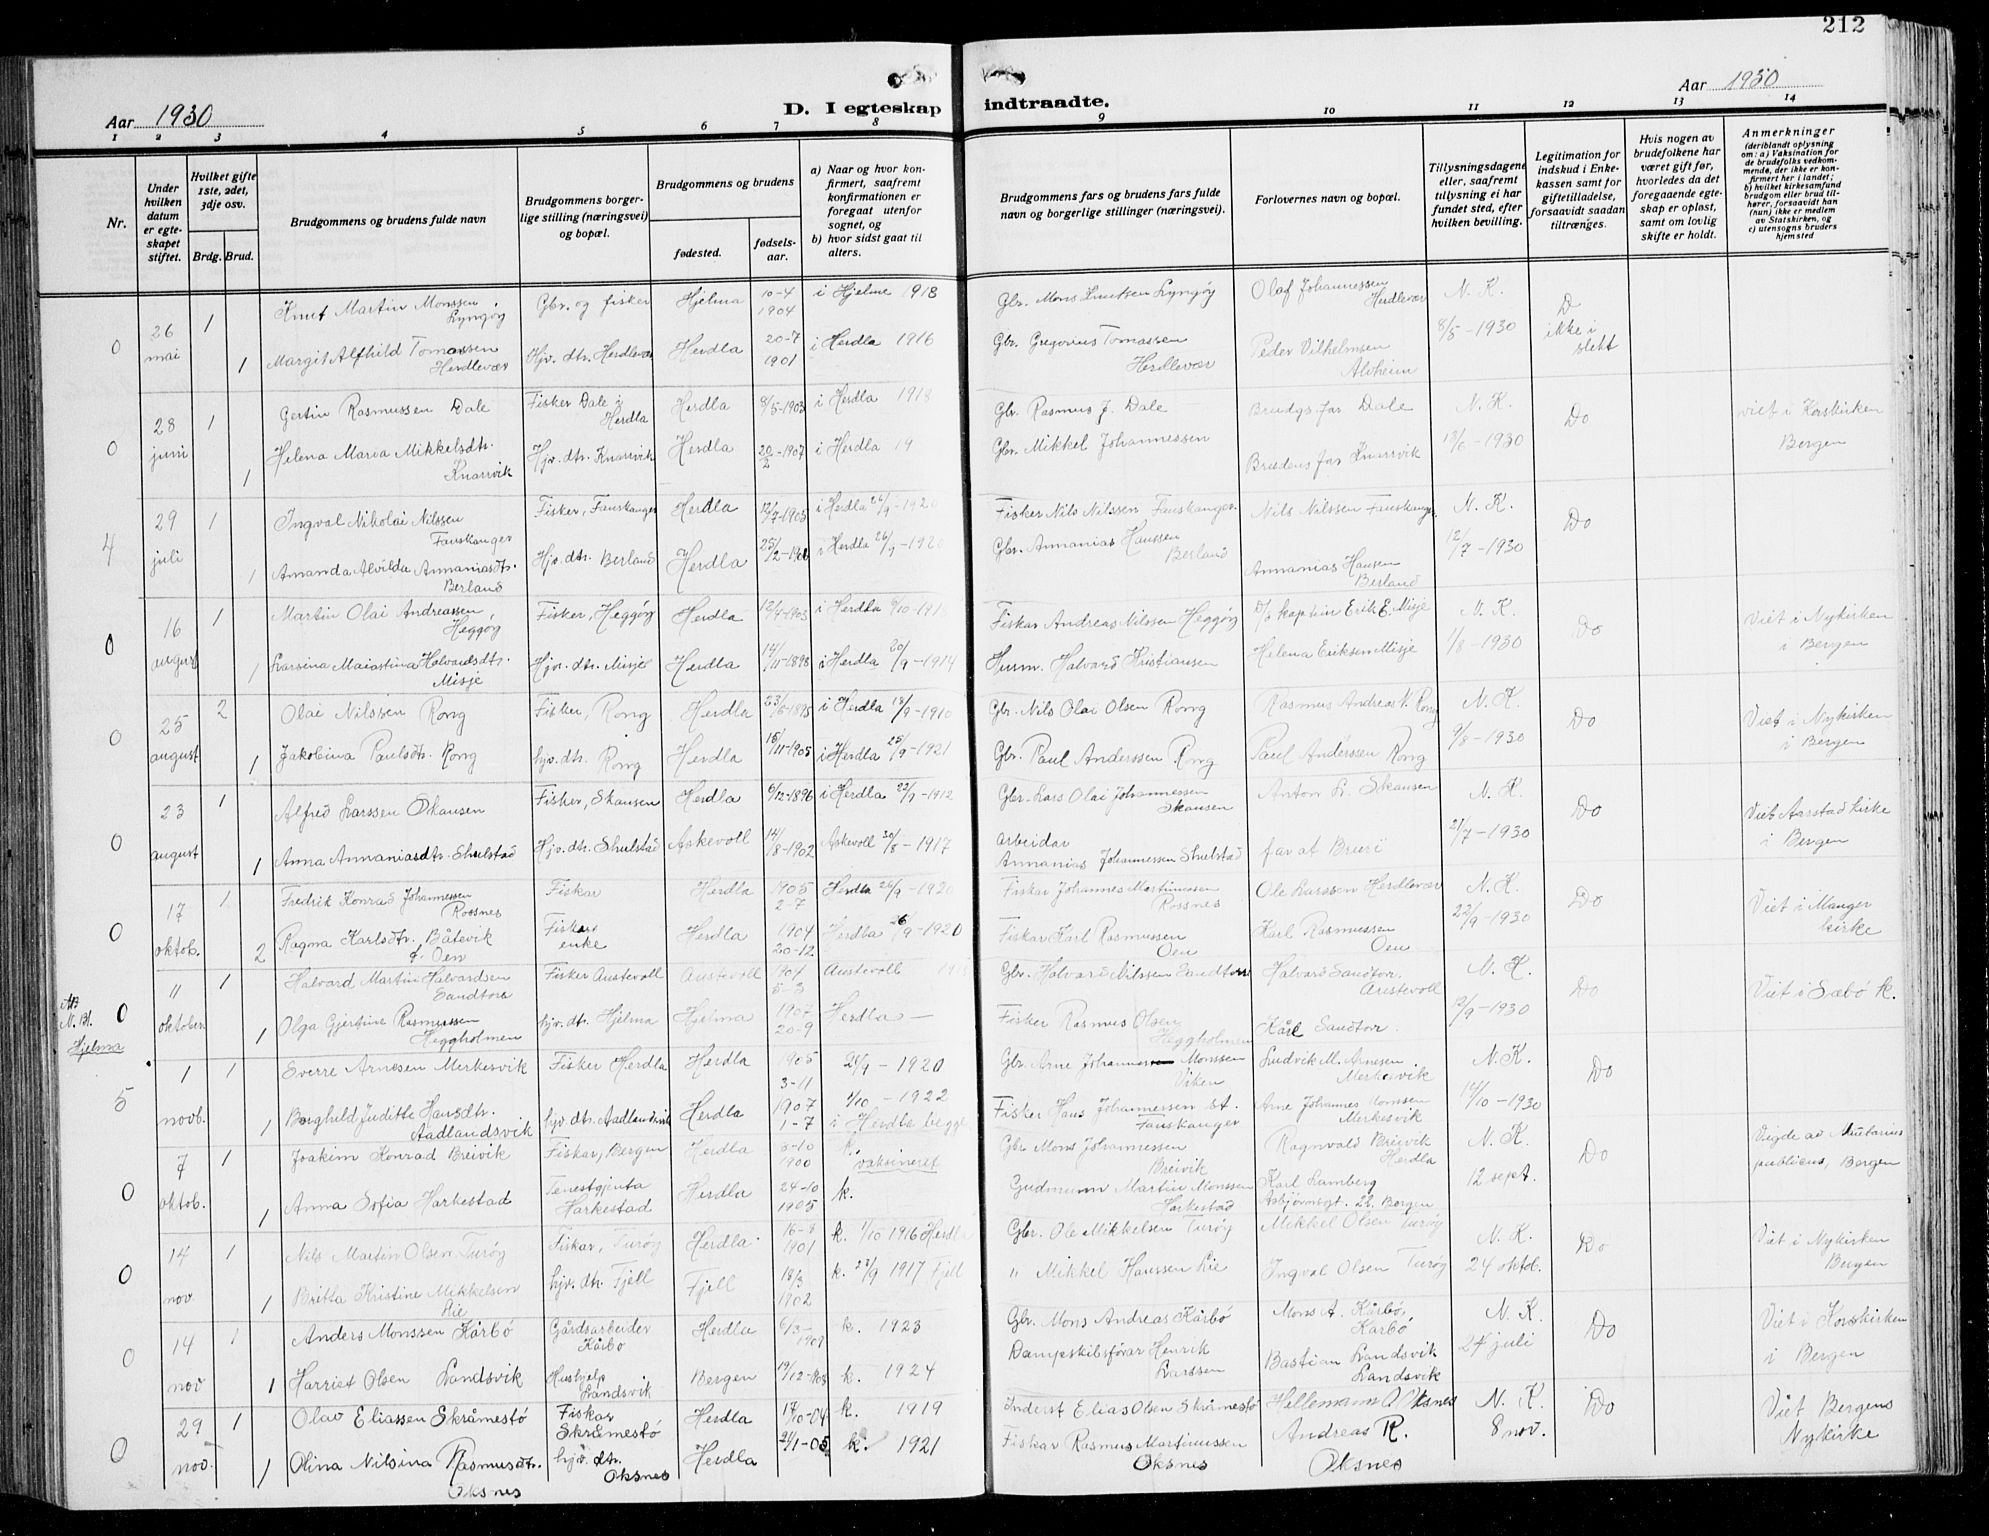 212
Aar 1930
D. I egteskap indtraadte.
Aar 1930
1 2 3 4 5 6 7 8 9 10 11 12 13 14
Nr.
Under hvilken datum er egteskapet stiftet.
Hvilket gifte 1ste, 2det, 3dje osv.
Brdg. Brud.
Brudgommens og brudens fulde navn
Brudgommens borgerlige stilling (næringsvei) og bopæl.
Brudgommens og brudens
fødested.
fødselsaar.
a) Naar og hvor konfirmert, saafremt konfirmationen er foregaat utenfor sognet, og
b) hvor sidst gaat til alters.
Brudgommens fars og brudens fars fulde navn og borgerlige stillinger (næringsvei).
Forlovernes navn og bopæl.
Tillysningsdagene eller, saafremt tillysning ei har fundet sted, efter hvilken bevilling.
Legitimation for indskud i Enkekassen samt for giftetilladelse, forsaavidt saadan tiltrænges.
Hvis nogen av brudefolkene har været gift før, hvorledes da det foregaaende egteskap er opløst, samt om lovlig skifte er holdt.
Anmerkninger (deriblandt oplysning om: a) Vaksination for de brudefolks vedkommende, der ikke er konfirmert her i landet; b) hvilket kirkesamfund brudgom eller brud tilhører, forsaavidt han (hun) ikke er medlem av Statskirken, og c) utensogns bruders hjemsted
0 26 mai 1 Knut Martin Monssen Lyngöy Gbr. og fisker Hjelma 10-4 1904 i Hjelme 1918 Gbr. Mons Knutsen Lyngöy Olaf Johannessen Herdlevær N. K. 8/5-1930 D ikke i slekt
1 Margit Alfhild Tomassen Herdlevær Hjv. dtr. Herdlevær Herdla 20-7 1901 i Herdla 1916 Gbr. Gregorius Tomassen Herdlevær Peder Vilhelmsen Alvheim
0 28 juni 1 Gertin Rasmussen Dale Fisker Dale i Herdla Herdla 8/5-1903 i Herdla 1918 Gbr. Rasmus J. Dale Brudgs far Dale N. K. 13/6-1930 Do viet i Korskirken Bergen
1 Helena Maria Mikkelsdtr. Knarrvik Hjv. dtr. Knarrvik Herdla 20/2-1907 i Herdla 19 Gbr. Mikkel Johannessen Brudens far Knarrvik
4 29 juli 1 Ingval Nikolai Nilssen Fauskanger Fisker, Fauskanger Herdla 12/7-1905 i Herdla 26/9-1920 Fisker Nils Nilssen Fauskanger Nils Nilssen Fauskanger N. K. 12/7-1930 Do
1 Amanda Alvilda Annaniasdtr. Berland Hjv. dtr. Berland Herdla 25/2-1906 i Herdla 26/9-1920 Gbr. Annanias Hanssen Berland Annanias Hansen Berland
0 16 august 1 Martin Olai Andreassen Heggöy Fisker, Heggöy Herdla 12/4-1903 i Herdla Fiskar Andreas Nilssen Heggöy D/s kaptein Erik E. Misje N. K. 1/8-1930 Do Viet i Nykirken i Bergen
1 Larsina Maiastina Halvardsdtr. Misje Hjv. dtr. Misje Herdla 14/11-1898 i Herdla 20/9-1914 Husm. Halvard Kristiansen Helena Eriksen Misje
0 25 august 2 Olai Nilssen Rong Fisker, Rong Herdla 23/6-1895 i Herdla 18/9-1910 Gbr. Nils Olai Olsen Rong Rasmus Andreas N. Rong N. K. 9/8-1930 Do Viet i Nykirken i Bergen
1 Jakobina Paulsdtr. Rong hjv. dtr. Rong Herdla 15/11-1905 i Herdla 25/9-1921 Gbr. Paul Anderssen Rong Paul Anderssen Rong
0 23 august 1 Alfred Larssen Skansen Fisker, Skansen Herdla 6/12-1896 i Herdla 22/9-1912 Gbr. Lars Olai Johannessen Skansen Anton L. Skansen N. K. 21/7-1930 Do Viet Aarstad kirke i Bergen
1 Anna Annaniasdtr. Skulstad Hjv. dtr. Skulstad Askevoll 14/8-1902 Askevoll 30/8-1917 arbeidar Annanias Johannessen Skulstad far at Bruri
0 17 oktob. 1 Fredrik Konrad Johannessen Rossnes Fiskar Herdla 1905 2-7 Herdla 26/9-1920 Fiskar Johannes Martinussen Rossnes Ole Larssen Herdlevær N. K. 22/9-1930 Do Viet i Manger kirke
2 Ragna Karlsdtr. Båtevik f. Oen Fiskar enke Herdla 1904 20-12 Herdla 26/9-1920 Fiskar Karl Rasmussen Oen Karl Rasmussen Oen
Hjelma 0 11 oktober 1 Halvard Martin Halvardsen Sandtorv Fisker Austevoll Austevoll 1904 5-3 Austevoll Gbr. Halvard Nilssen Sandtorv Halvard Sandtorv. Austevoll N. K. 12/9-1930 Do Viet i Sæbö k.
1 Olga Gjertine Rasmussen Heggholmen hjv. dtr. Hjelma Hjelma 1907 20-9 Herdla - Fisker Rasmus Olsen Heggholmen Kårl Sandtorv.
5 1 novb. 1 Sverre Arnesen Merkesvik Fisker Herdla Herdla 1905 3-11 26/9-1920 Gbr. Arne Johannes Monssen Viken Ludvik M. Arnesen Merkesvik N. K. 14/10-1930 Do
1 Borghild Juditte Hansdtr. Aadlandsvik hjv dtr. Aadlandsvik Herdla 1907 1-7 1/10-1922 i Herdla begge Fisker Hans Johannessen st. Fauskanger Arne Johannes Monssen Merkesvik
0 7 oktob. 1 Joakim Konrad Breivik Fiskar, Bergen Herdla 3-10 1900 k. vaksineret Gbr Mons Johannessen Breivik Ragnvald Breivik Herdla N. K. 12 sept. Do Vigde av Notarius publicus, Bergen
1 Anna Sofia Harkestad Tenestgjenta Harkestad Herdla 24-10 1905 k. Gudmunn Martin Monssen Harkestad Karl Lamberg Asbjörnsgt. 22. Bergen
0 14 nov. 1 Nils Martin Olsen Turöy Fiskar, Turöy Herdla 16-8 1901 k. 1/10 1916 Herdla Gbr. Ole Mikkelsen Turöy Mikkel Olsen Turöy N. K. 24 oktob. Do Viet i Nykirken Bergen
1 Britta Kristine Mikkelsen Lie hjv. dtr. Fjell Fjell 18/3 1902 k. 23/9 1917 Fjell " Mikkel Hanssen Lie Ingval Olsen Turöy
0 14 nov 1 Anders Monssen Kårbö Gårdsarbeider Kårbö Herdla 6/3- k. 1923 Gbr. Mons Andreas Kårbö Mons A. Kårbö, Kårbö N. K. 24 juli Do Viet i Korskirken i Bergen
1 Harriet Olsen Landsvik Hushjelp Landsvik Bergen 19/12-1908 k. 1924 Dampskibsförar Henrik Larssen Bastian Landsvik Landsvik
0 29 nov. 1 Olav Eliassen Skråmestö Fiskar Skråmestö Herdla 17/10-04 k. 1919 Inderst Elias Olsen Skråmestö Hellemann A Oksnes N. K. 8 nov. Do Viet Bergens Nykirke
1 Olina Nilsina Rasmusdtr. Oksnes hjv. dtr. Oksnes Herdla 21/1-05 k. 1921 Fiskar Rasmus Martinussen Oksnes Andreas R. Oksnes